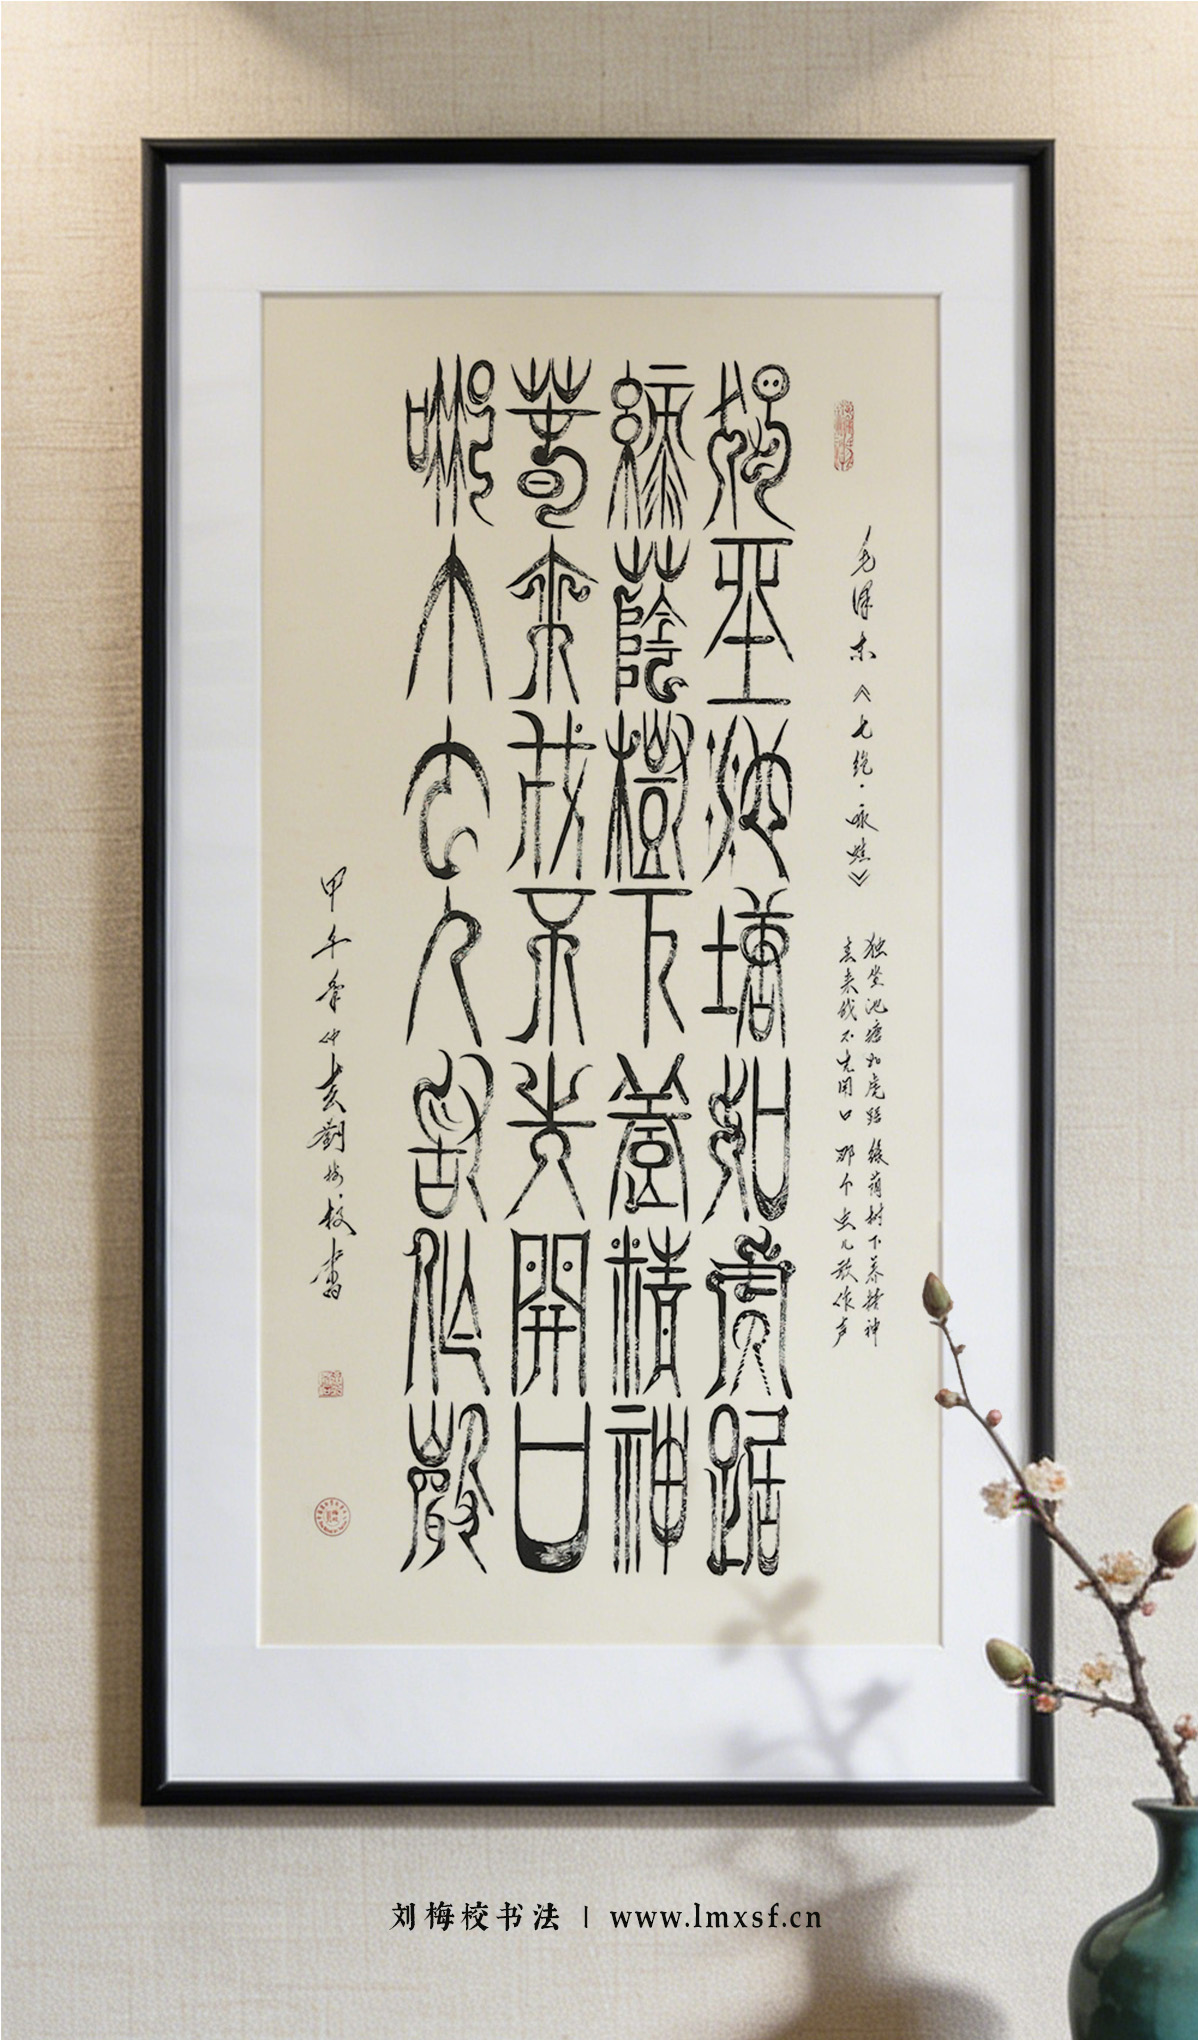 毛泽东《七绝·咏蛙》
独坐池塘如虎踞 绿荫树下养精神
春来我不先开口 那个虫儿敢作声
獨坐池塘如虎踞
綠蔭樹下養精神
春來我不先開口
哪个虫儿敢作聲
甲午年仲春劉梅校書
刘梅校书法 | www.lmxsf.cn